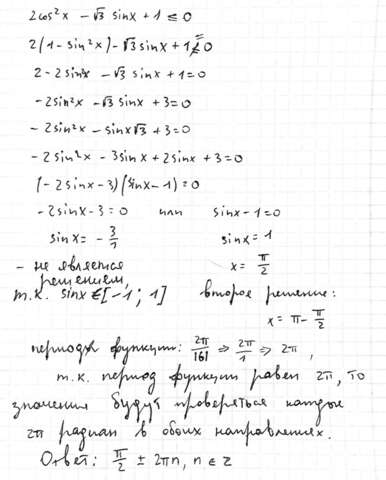 2cos²x - √3 sinx + 1 ≤ 0
2(1 - sin²x) - √3 sinx + 1 ≤ 0
2 - 2sin²x - √3 sinx + 1 = 0
-2sin²x - √3 sinx + 3 = 0
-2sin²x - sinx√3 + 3 = 0
-2sin²x - 3sinx + 2sinx + 3 = 0
(-2sinx - 3)(sinx - 1) = 0
-2sinx - 3 = 0 или sinx - 1 = 0
sinx = - 3/1 sinx = 1
- не является x = π/2
решением,
т.к. sinx ∈ [-1; 1] второе решение:
x = π - π/2
период функции: 2π/|б| ⇒ 2π/1 ⇒ 2π,
т.к. период функции равен 2π, то
значения будут проверяться каждые
2π радиан в обоих направлениях.
Ответ: π/2 ± 2πn, n ∈ z